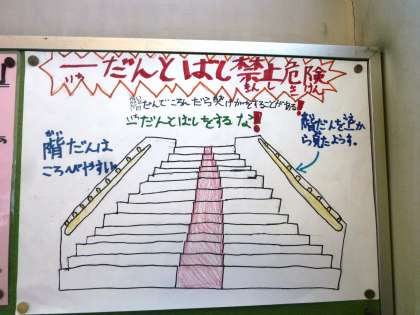 一だんとばし禁止危険
いち きんし きけん
階だんでころんだら死けがをすることがある!
一だんとばしをするな!
いち
階だんは
かい
ころびやすい。
階だんを正か
ら見たようす。